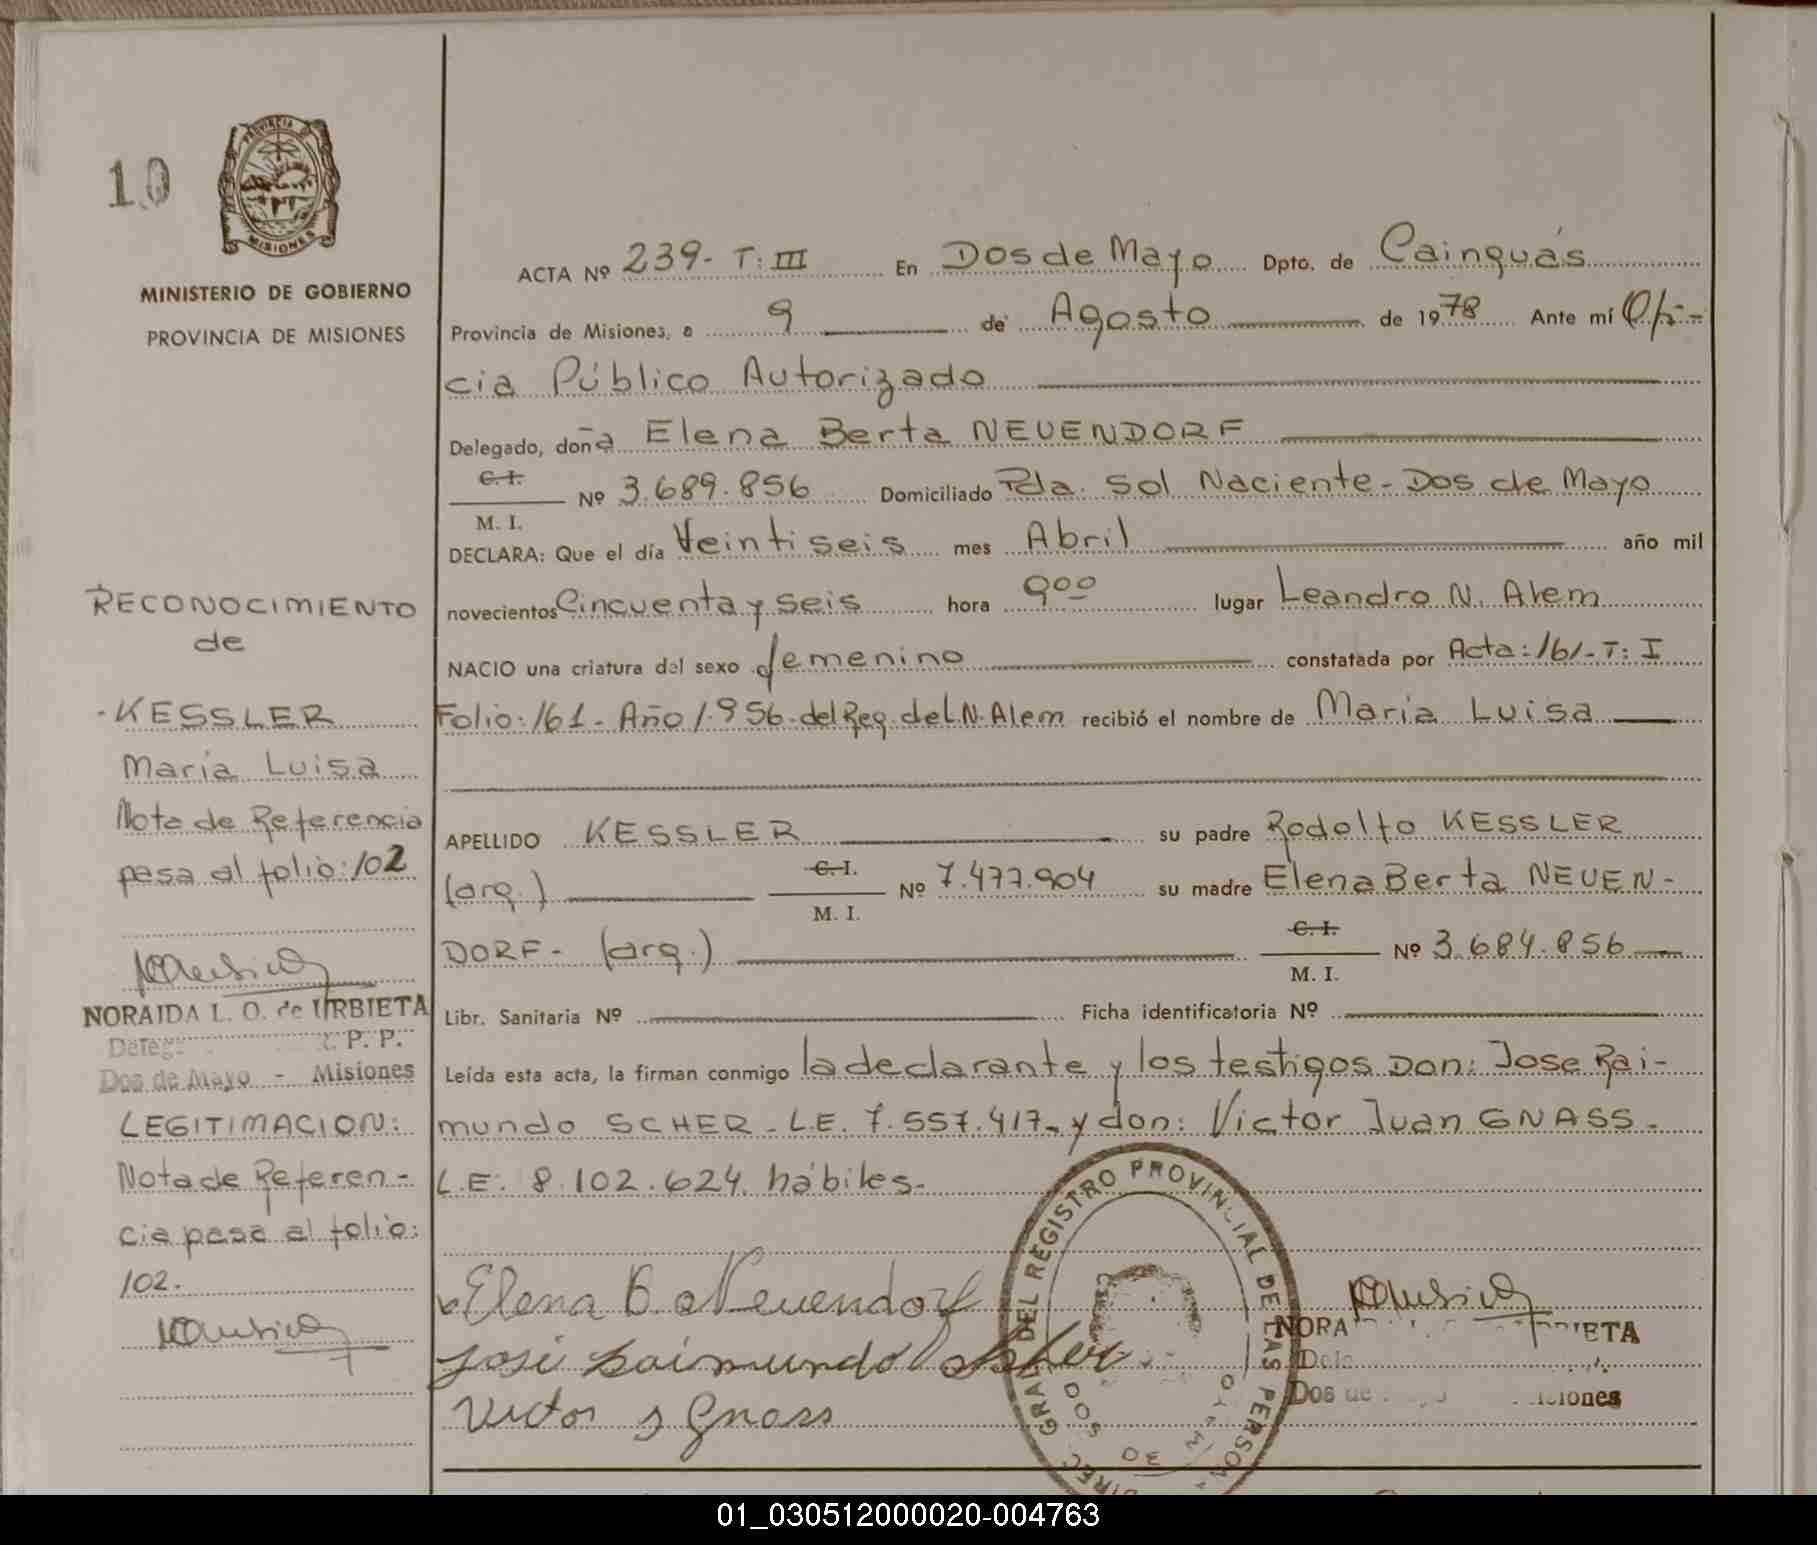 10
PROVINCIA DE
MISIONES
MINISTERIO DE GOBIERNO
PROVINCIA DE MISIONES
RECONOCIMIENTO
de
-KESSLER
Maria Luisa
Nota de Referencia
pasa al folio: 102
NORAIDA L. O. de URBIETA
P. P.
Dos de Mayo - Misiones
LEGITIMACION:
Nota de Referen-
cia pasa al folio:
102.
ACTA Nº 239- T: III En Dos de Mayo Dpto. de Cainguás
Provincia de Misiones, a 9 de Agosto de 1978 Ante mí
cia Público Autorizado
Delegado, doña Elena Berta NEUENDORF
C. I.
M. I. Nº 3.689.856 Domiciliado Pda. Sol Naciente - Dos de Mayo
DECLARA: Que el día Veintiseis mes Abril año mil
novecientos Cincuenta y seis hora 9 00 lugar Leandro N. Alem
NACIO una criatura del sexo femenino constatada por Acta: 161- T: I
Folio: 161 - Año 1.956. del Reg. de L.N. Alem recibió el nombre de Maria Luisa
APELLIDO KESSLER su padre Rodolfo KESSLER
(arg.) C. I. M. I. Nº 7.477.904 su madre Elena Berta NEUEN-
DORF - (arg.) C. I. M. I. Nº 3.684.856
Libr. Sanitaria Nº Ficha identificatoria Nº
Leída esta acta, la firman conmigo la declarante y los testigos Don: Jose Rai-
mundo SCHER - L.E. 7.557.417- y don: Victor Juan GNASS.
L.E: 8.102.624. hábiles.-
Elena B. Neuendorf
José Raimundo Scher
Victor J Gnass
DIREC. GRAL DEL REGISTRO PROVINCIAL DE LAS PERSON
Dos de
01_030512000020-004763